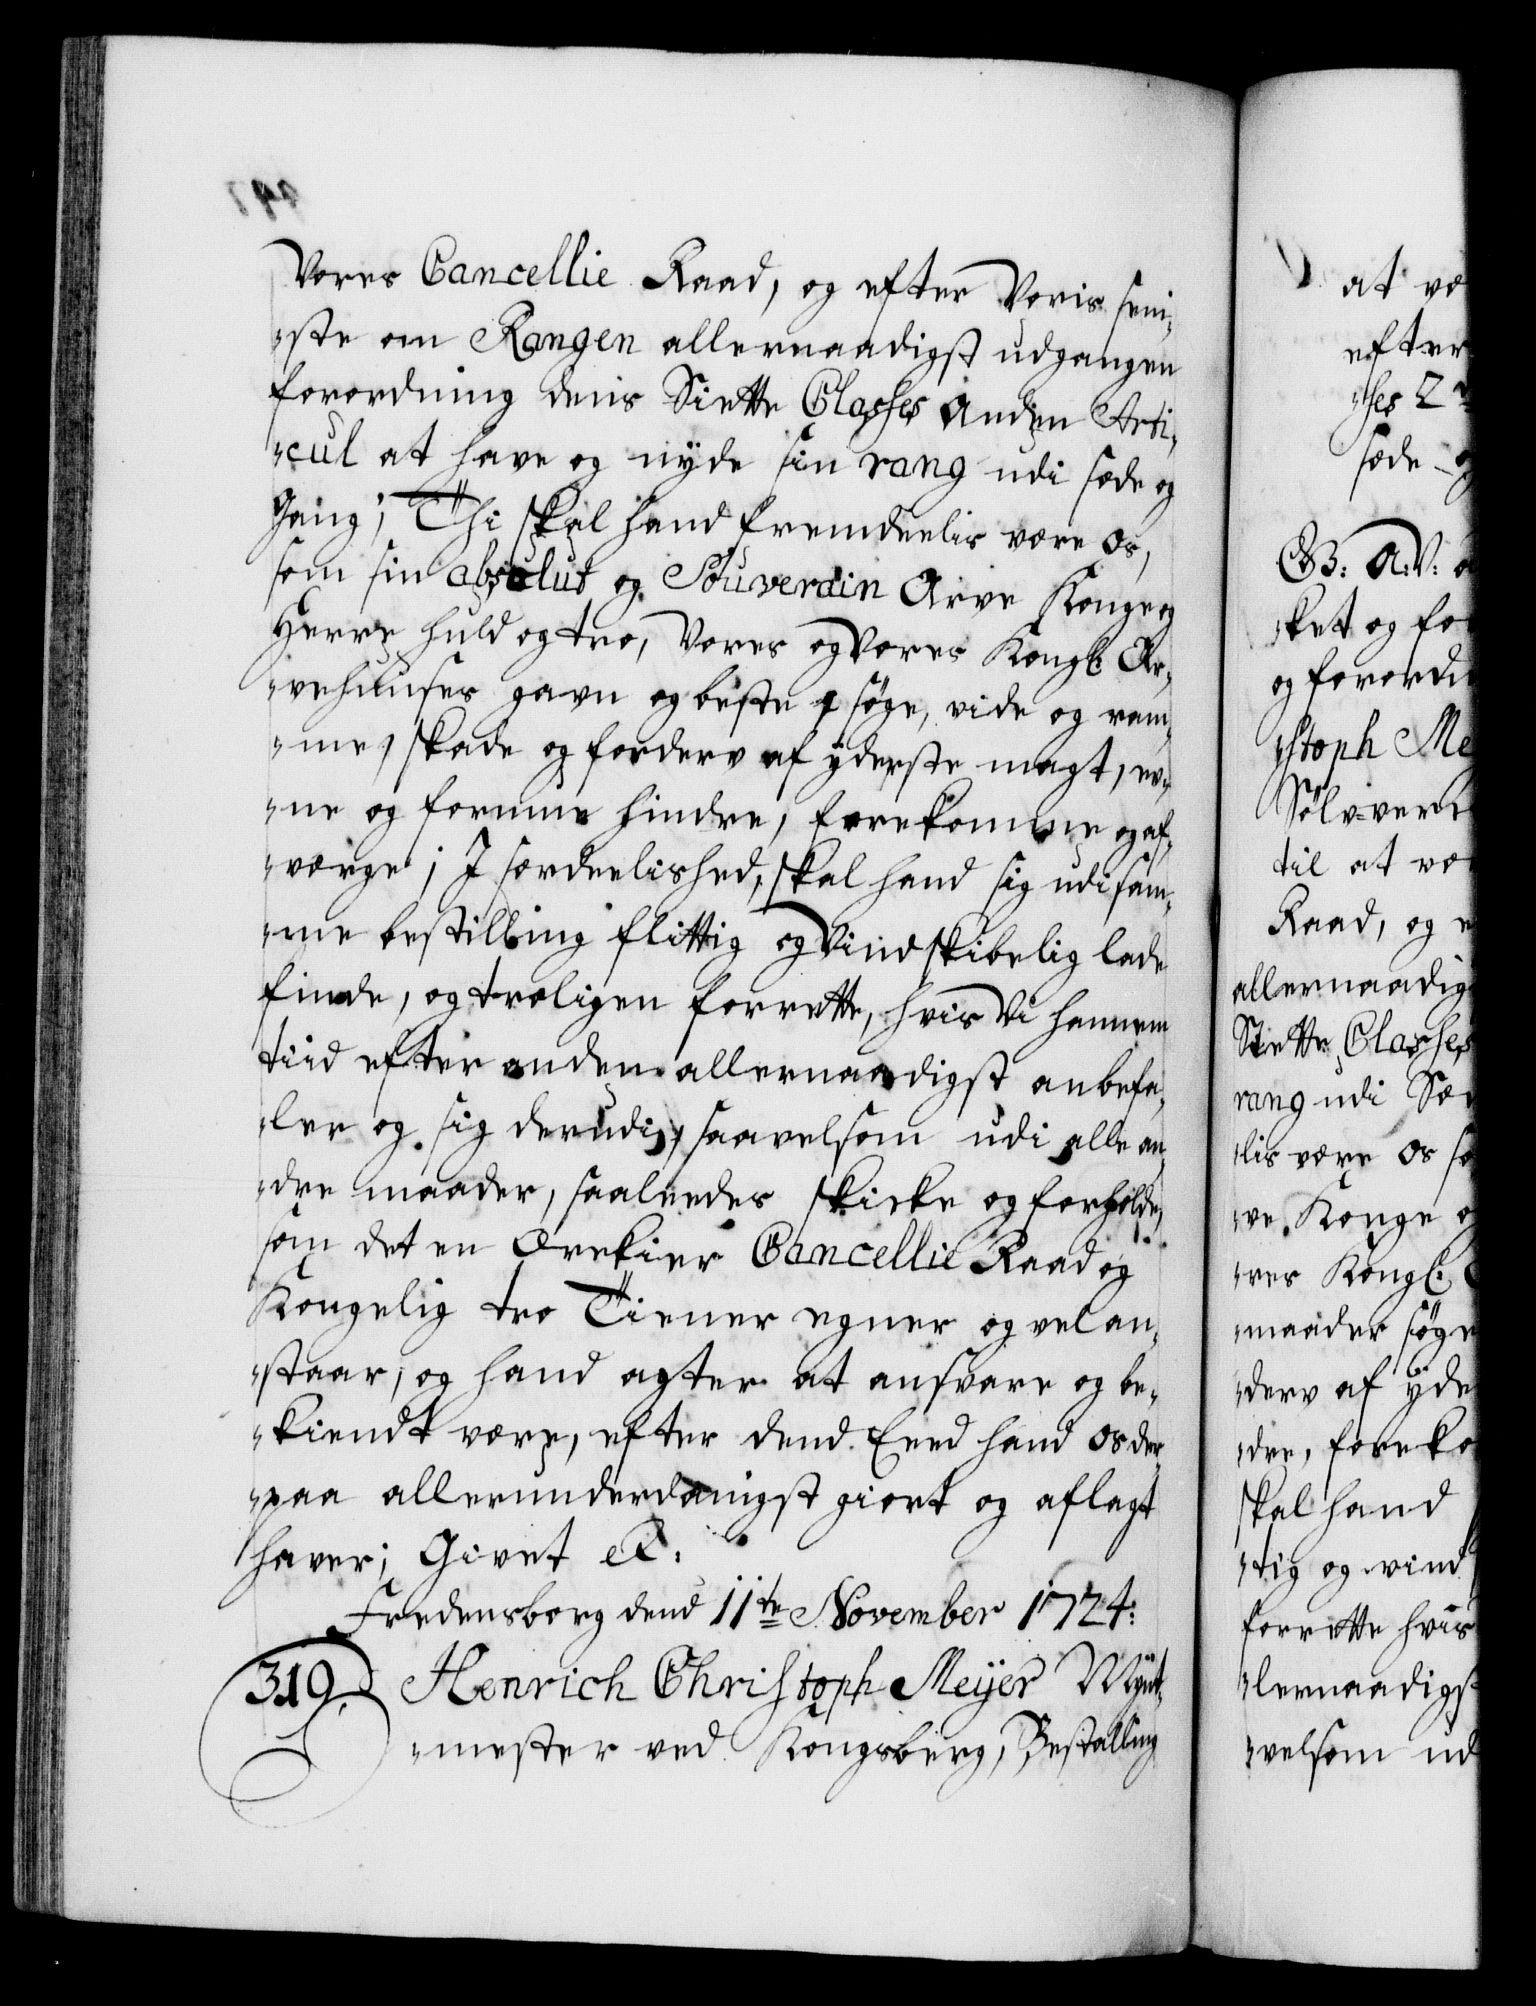 Vores Cancellie Raad, og efter Voris seni-
ste om Rangen allernaadigst udgangen
forordning dens Siette Classes Anden Arti-
cul at have og nyde sin rang udi sæde og
gang; Thi skal hand fremdeelis være os,
som sin absolut og Souverain Arve Konge og
Herre huld og tro, Vores og Vores Kongl: Ar-
vehuuses gavn og beste søge, vide og ram-
me, skade og forderv af yderste magt, ev-
ne og formue hindre, forekomme og af-
værge; I særdeelished, skal hand sig udi sam-
me bestilling flittig og Vindskibelig lade
finde, og troligen forrette, hvis Vi hannem
tiid efter anden allernaadigst anbefa-
ler og sig derudi, saavelsom udi alle an-
dre maader, saaledes skicke og forholde,
som det en ærekier Cancellie Raad og
Kongelig tro Tiener egner og vel an-
staar, og hand agter at ansvare og be-
kiendt være, efter dend Eed hand os der-
paa allerunderdanigst giort og aflagt
haver; Givet &.
Fredensborg dend 11te November 1724:
319 Henrich Christoph Meyer Mynt-
mester ved Kongsberg, Bestalling
at væ
efter
ses 2
sæde og
G: A: V:
ket og for
og forordn
stoph Me
Sølv-verc
til at vær
Raad, og e
allernaadig
Siette Classes
rang udi Sæ
lis være os so
ve Konge o
res Kongl:
maader søge
derv af yde
dre, foreko
skal hand
tig og vind
forrette hvis
lernaadigst
velsom ud